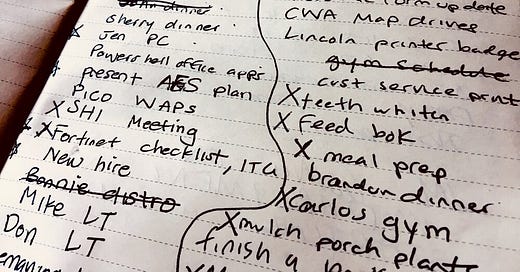 John dinner
sherry dinner
X Jen PC
Powershell office apps
present AES plan
PICO WAPs
X SHI Meeting
X Fortinet checklist, ITG
New hire
Bonnie distro
Mike LT
Don LT
update
CWA Map drives
Lincoln printer badge
gym schedule
cust service print
X teeth whiten
X Feed bok
X meal prep
brandon dinner
X carlos gym
X mulch porch plants
finish a